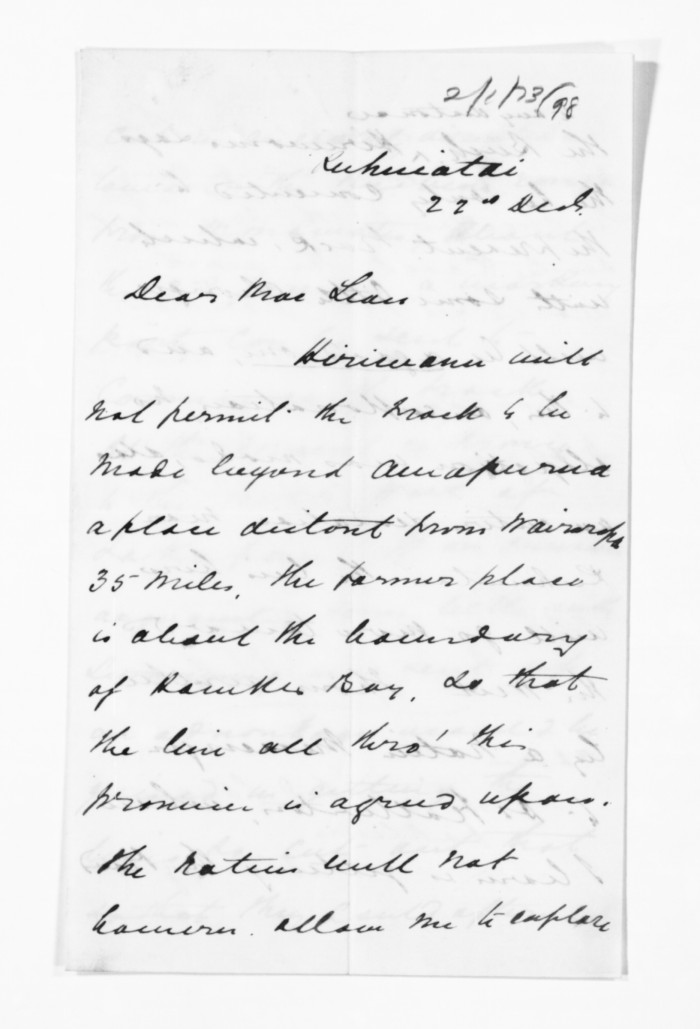 2/1/73/98
22nd Decr.
Dear Mac Lean
will
not permit the track to be
made beyond
a place distant from Wairoa
35 miles, the former place
is about the boundary
of Hawkes Bay, so that
the line all thro' this
province is agreed upon.
The natives will not
however allow me to explore